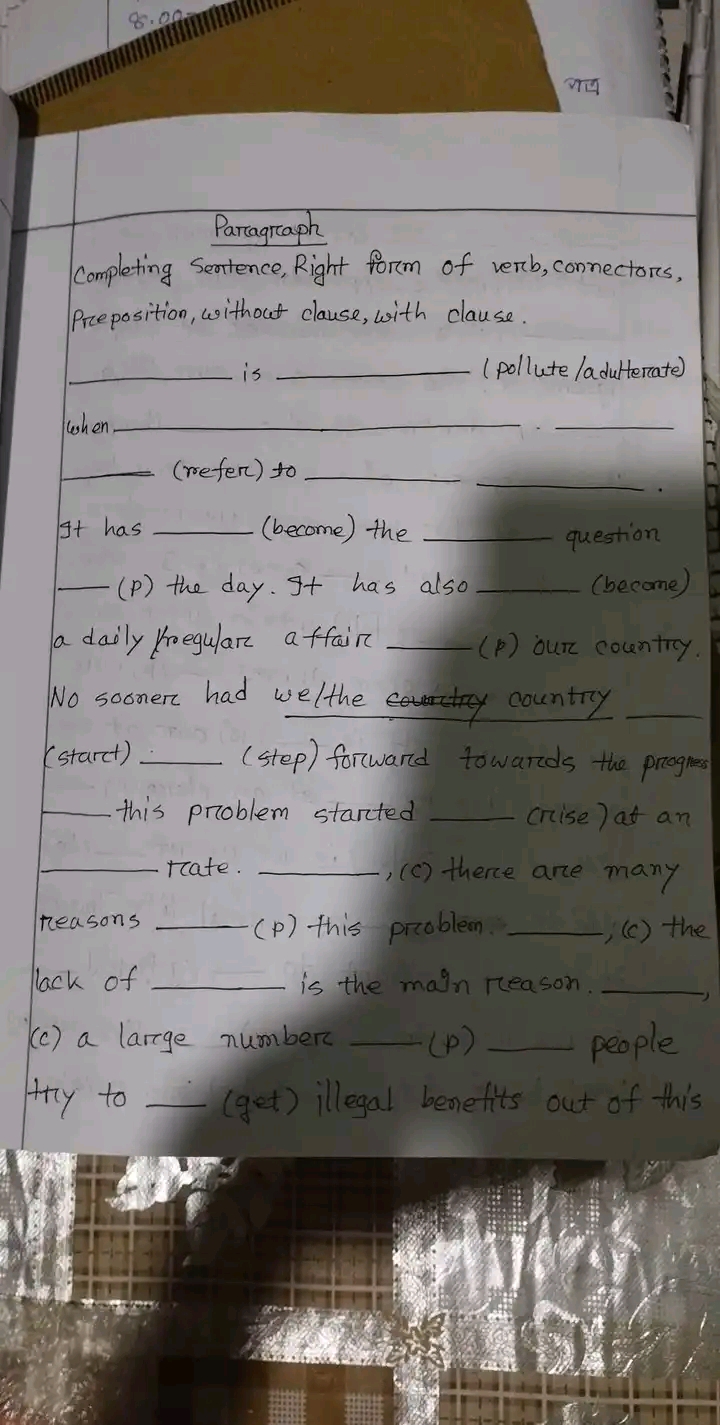 8:00
Paragraph
Completing Sentence, Right form of verb, connectors,
Preposition, without clause, with clause.
________ is __________ (pollute/adulterate)
when ____________________ . ______
_____ (refer) to ________ _________ .
It has _____ (become) the ______ question
___ (p) the day. It has also _____ (become)
a daily/regular affair ____ (p) our country.
No sooner had we/the country country ____
(start) ____ (step) forward towards the progress
____ this problem started ____ (rise) at an
______ rate. ______, (c) there are many
reasons _____ (p) this problem. _____, (c) the
lack of _______ is the main reason. _____,
(c) a large number ____ (p) ____ people
try to ___ (get) illegal benefits out of this